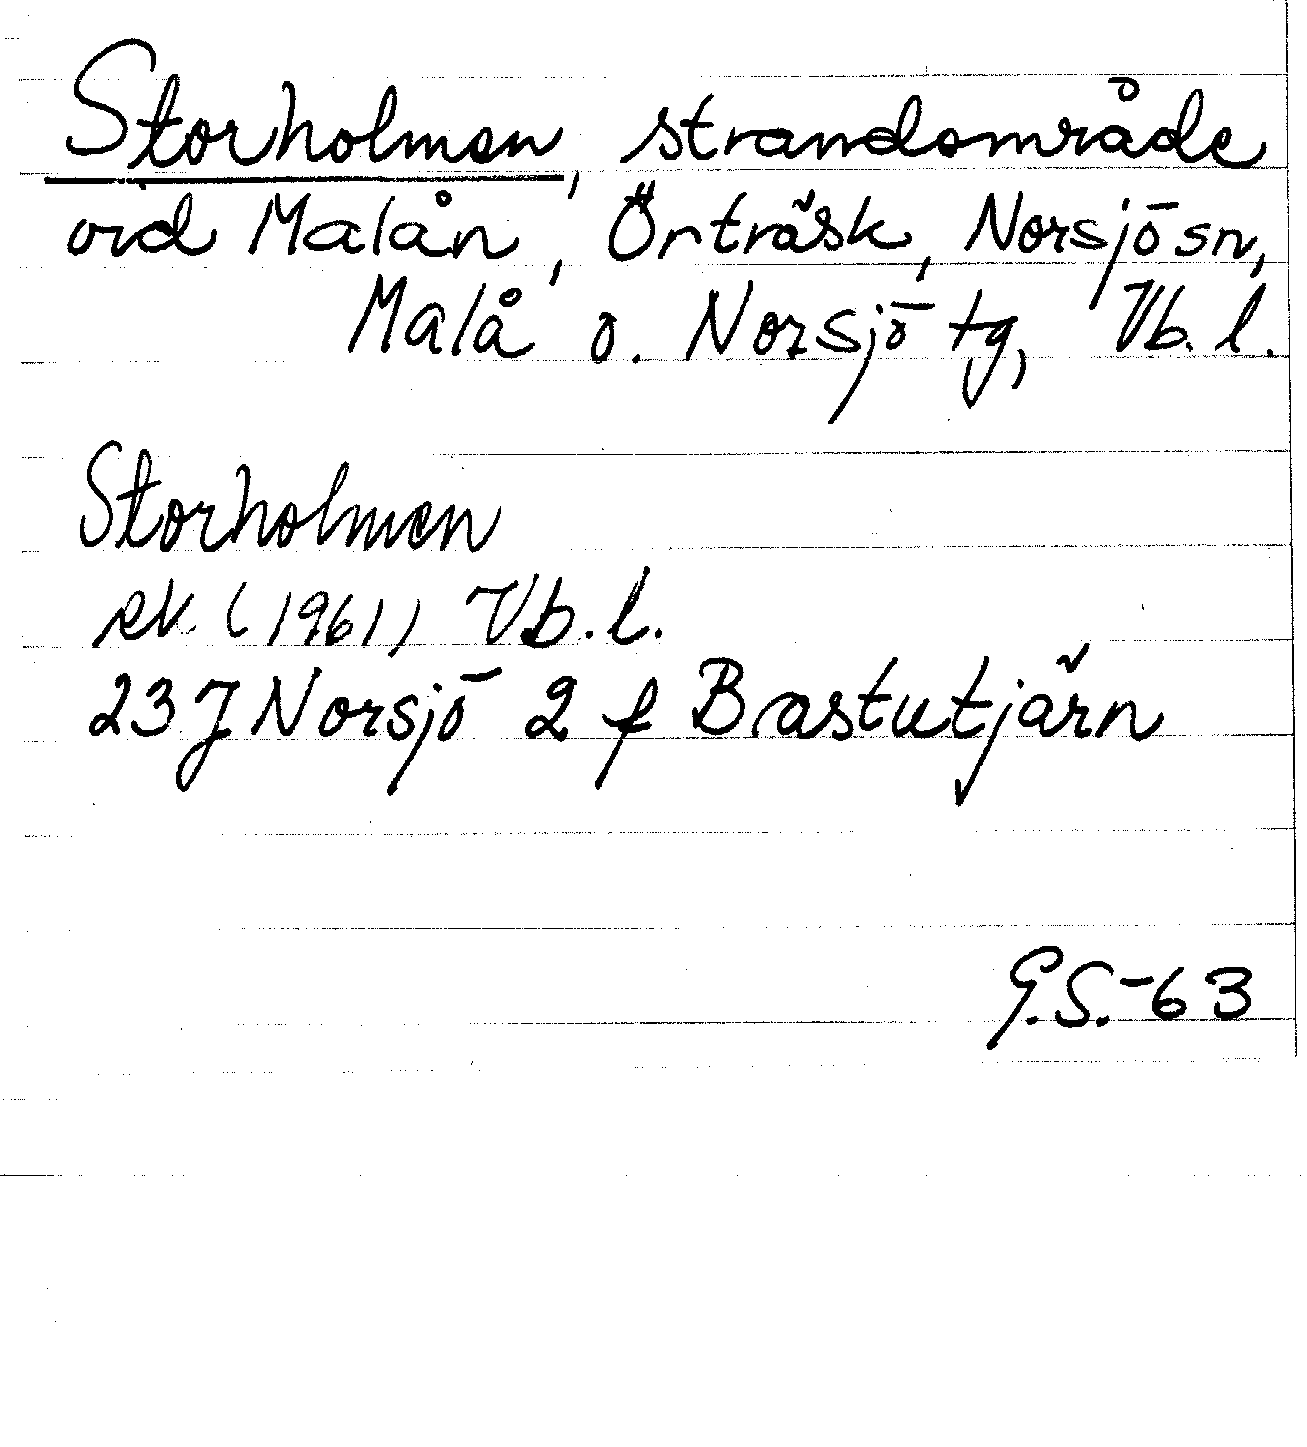 Storholmen, strandområde
vid Malån, Örträsk, Norsjö sn,
Malå o. Norsjö tg, Vb. l.
Storholmen
ek (1961) Vb. l.
23 J Norsjö 2 f Bastutjärn
G.S.-63